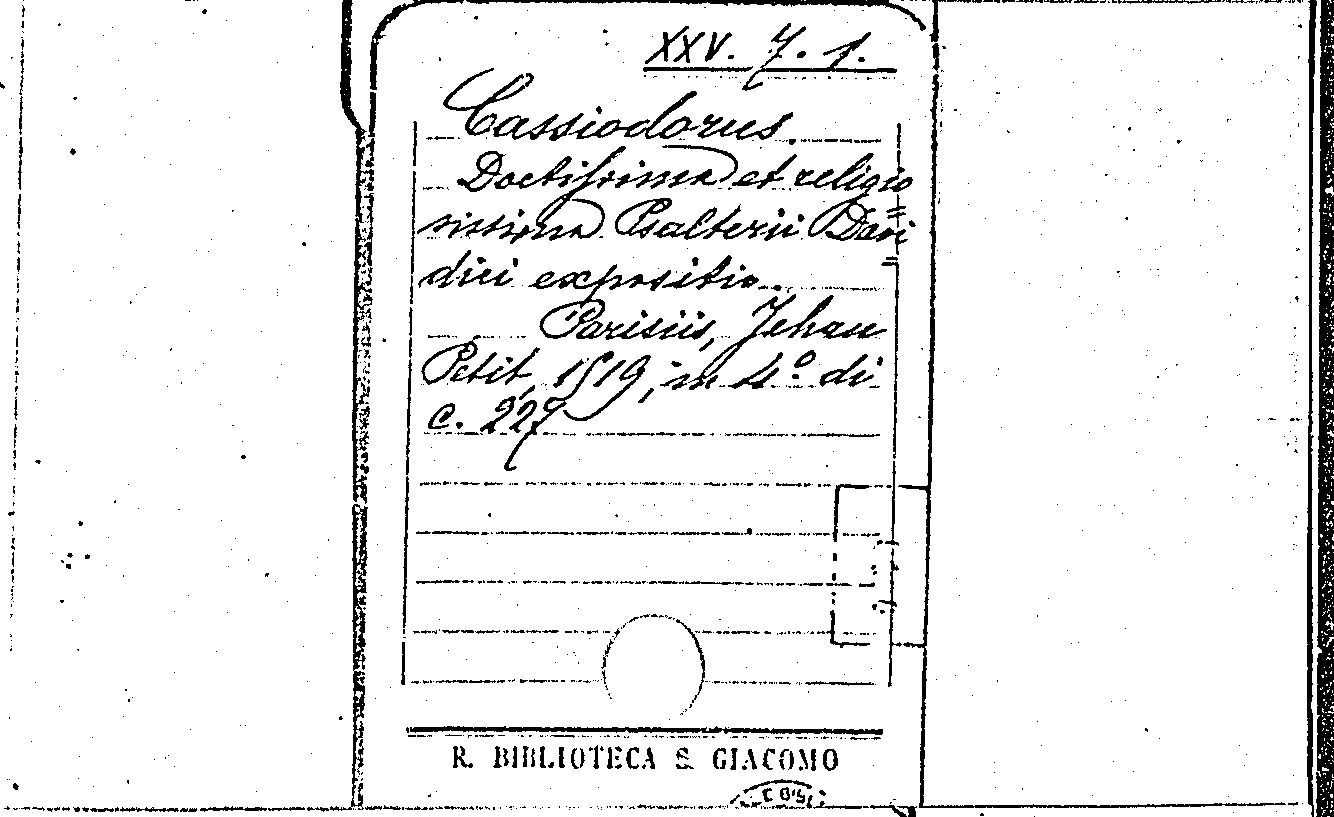 XXV. 7. 1.
Cassiodorus.
Doctissima et religio=
sissima Psalterii Davi=
dici expositio.
Parisiis, Jehan
Petit, 1519, in 4.º di
c. 227
R. BIBLIOTECA S. GIACOMO